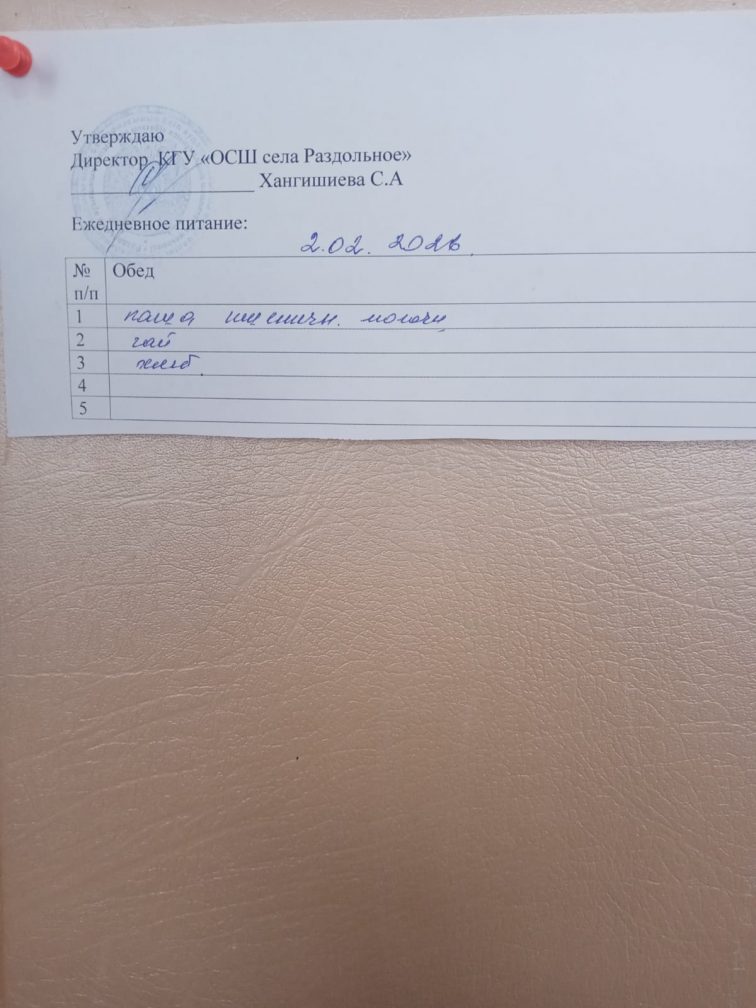 Утверждаю
Директор КГУ «ОСШ села Раздольное»
Хангишиева С.А
Ежедневное питание:
2.02. 2026
№ п/п Обед
1 каша пшеничн. молочн
2 чай
3 хлеб
4
5